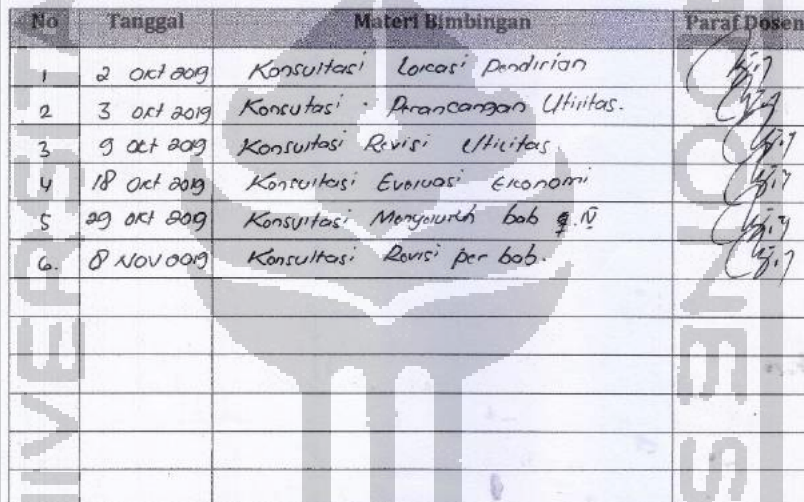 No Tanggal Materi Bimbingan Paraf Dosen
1 2 Okt 2019 Konsultasi Lokasi Pendirian
2 3 Okt 2019 Konsutasi · Perancangan Utilitas.
3 9 Okt 2019 Konsultasi Revisi Utilitas.
4 18 Okt 2019 Konsultasi Evaluasi Ekonomi
5 29 Okt 2019 Konsultasi Menyeluruh bab IV
6. 8 Nov 2019 Konsultasi Revisi per bab.